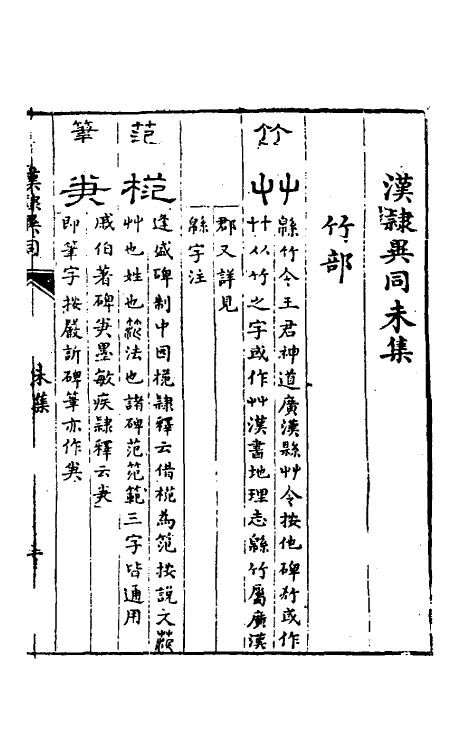 漢隸異同未集
竹部
竹
艸
緜竹令王君神道廣漢縣艸令按他碑竹或作
艹从竹之字或作艸漢書地理志緜竹屬廣漢
郡又詳見
緜字注
范
逢盛碑制中因梔隸釋云借梔為范按說文
艸也姓也範法也諸碑范笵範三字皆通用
筆
戚伯著碑 墨敏疾隸釋云
即筆字按嚴訢碑筆亦作
漢隸異同
未集